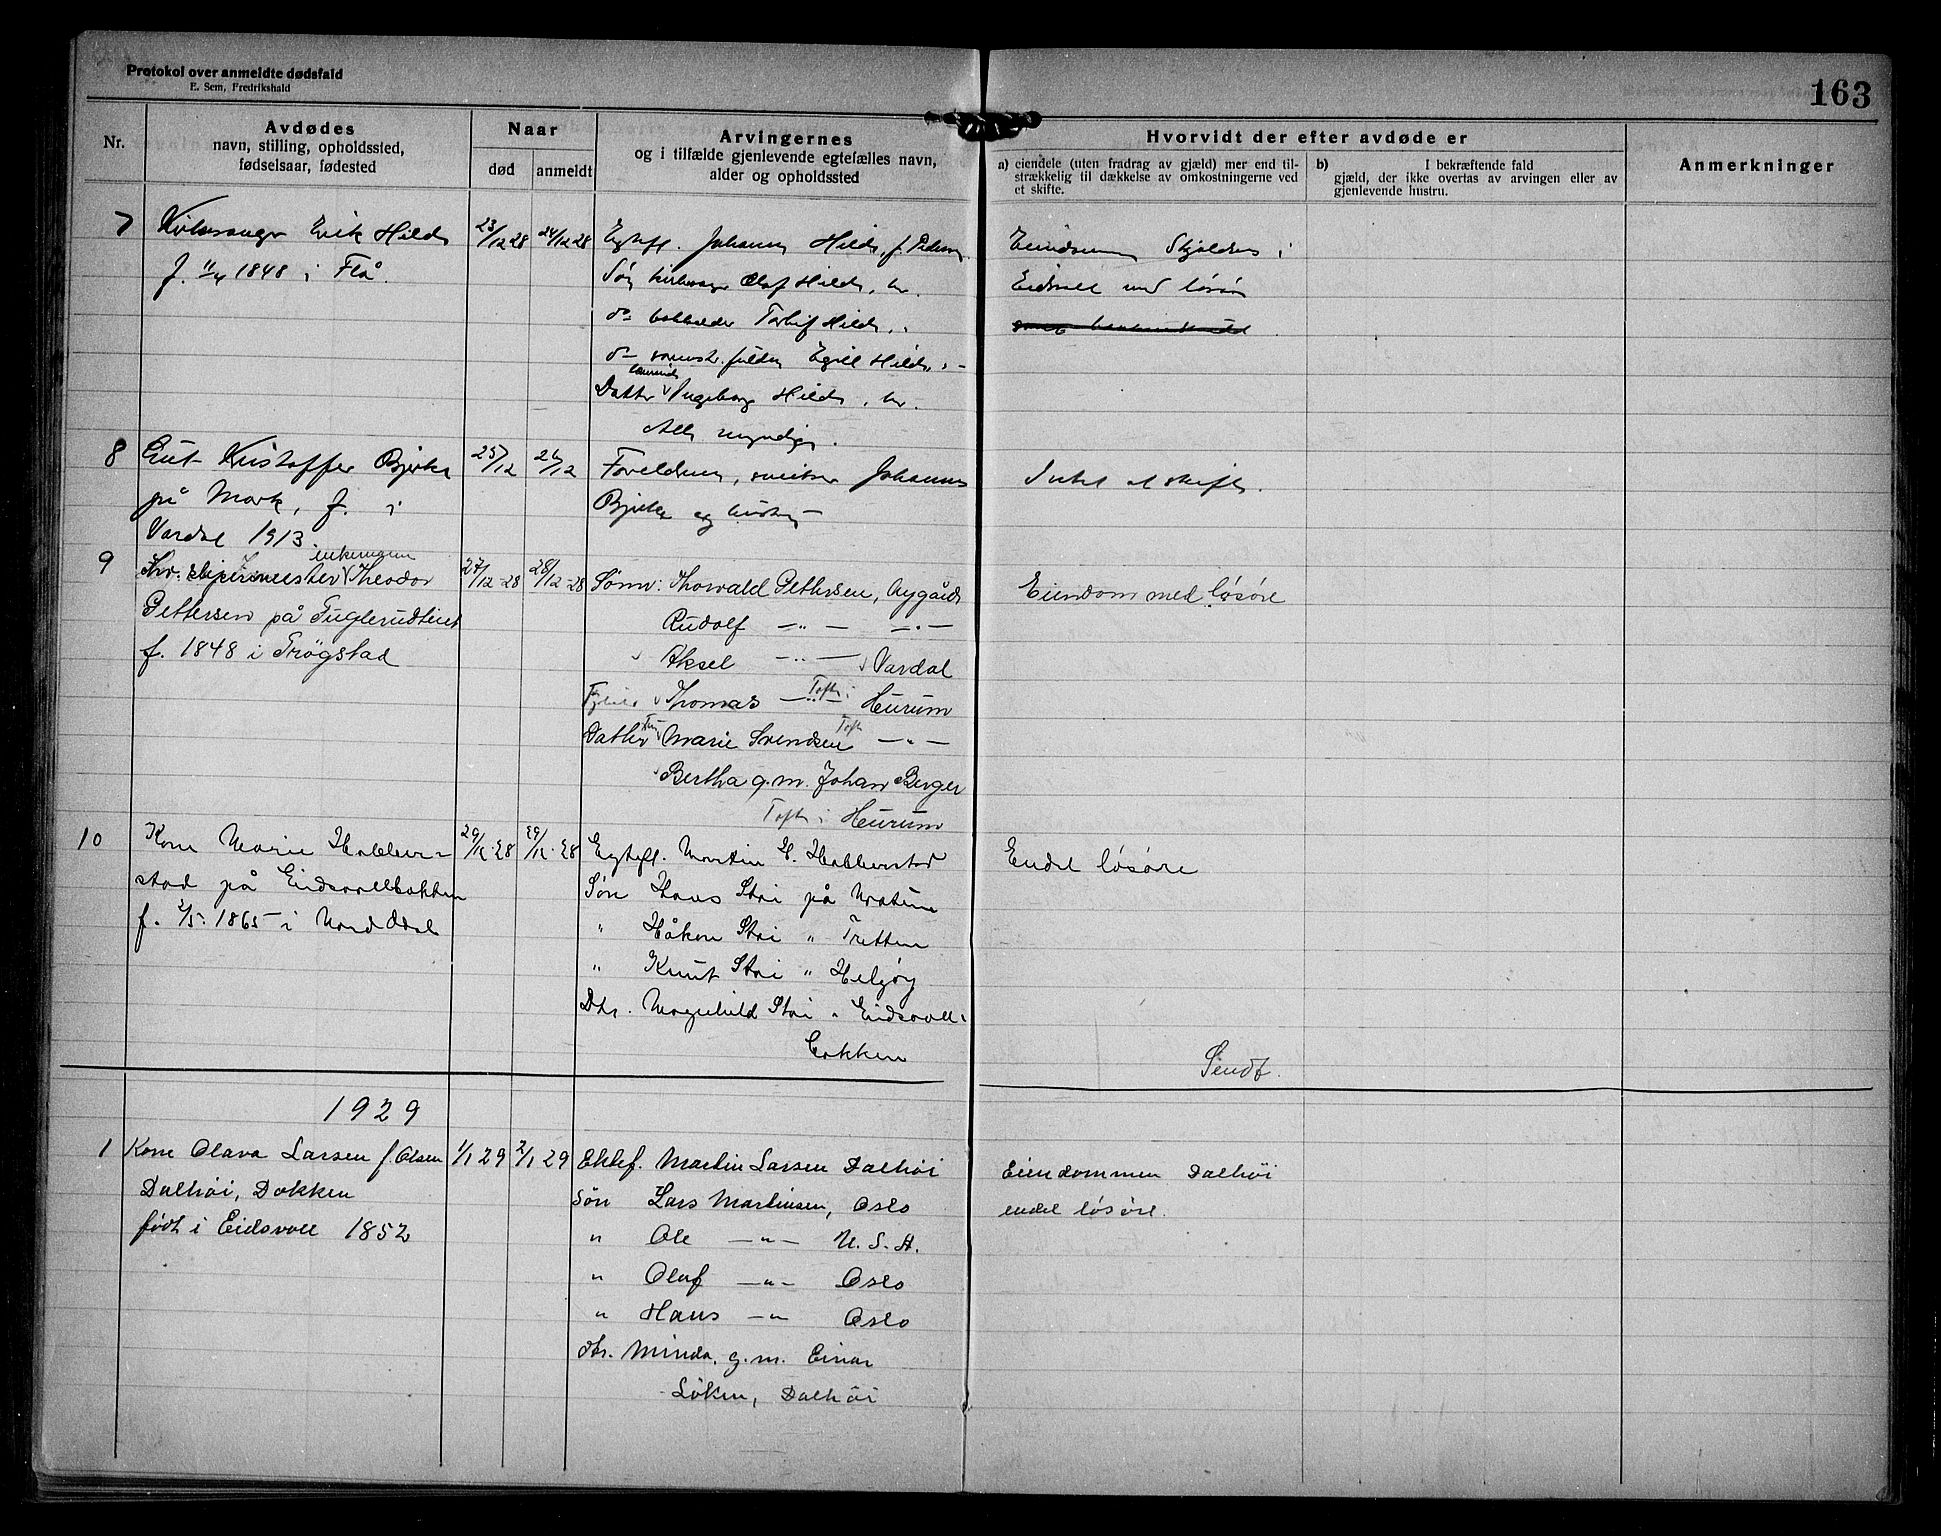 Protokol over anmeldte dødsfald
E. Sem, Fredrikshald
163
Nr.
Avdødes
navn, stilling, opholdssted,
fødselsaar, fødested
Naar
død
anmeldt
Arvingernes
og i tilfælde gjenlevende egtefælles navn,
alder og opholdssted
Hvorvidt der efter avdøde er
a) eiendele (uten fradrag av gjæld) mer end til-
strækkelig til dækkelse av omkostningerne ved
et skifte.
b) I bekræftende fald
gjæld, der ikke overtas av arvingen eller av
gjenlevende hustru.
Anmerkninger
7
Kirkesanger Erik Hilds
f. 11/4 1848 i Flå.
23/12 28
24/12 28
Egtefl. Johanne Hilds, f.
Søn kirkesanger Olaf Hilds, her.
do Torleif Hilds, "
do Egill Hilds, " -
Datter Ingeborg Hilds, her.
Alle myndige.
Skjoldnes i
Eidsvoll med løsøre
8
Gut Kristoffer Bjerke
på Mork, f. i
Vardal 1913
25/12
26/12
Foreldrene, sveitser Johannes
Bjerke og hustru
Intet at skifte.
9
enkemann
Fhv. skjermester Theodor
Pettersen på Fuglerudteiet
f. 1848 i Trøgstad
27/12-28
28/12-28
Sønn: Thorvald Pettersen, Nygård
Rudolf -"- -"-
Aksel -"- Vardal
Thomas -"- Tofte i Hurum
Datter Marie Svendsen Tofte -"-
Bertha g.m. Johan Berger
Tofte i Hurum
Eiendom med løsøre
10
Kone Marie Habber-
stad på Eidsvollbakken
f. 2/5. 1865 i Nord Odal
29/12-28
29/12-28
Egtefl. Martin H. Habberstad
Søn Hans Stai på
" Håkon Stai " Tretten
" Knut Stai " Helgøy
Dtr. Magnhild Stai " Eidsvoll-
bakken
Endel løsøre
Sendt.
1929
1
Kone Olava Larsen f. Olsen
Dalhøi, Dokken
født i Eidsvoll 1852
1/1 29
2/1 29
Ektef. Martin Larsen Dalhøi
Søn Lars Martinsen, Oslo
" Ole -"- U. S. A.
" Olaf -"- Oslo
" Hans -"- Oslo
dtr. Minda, g.m. Einar
Løken, Dalhøi
Eiendommen Dalhøi
endel løsøre.